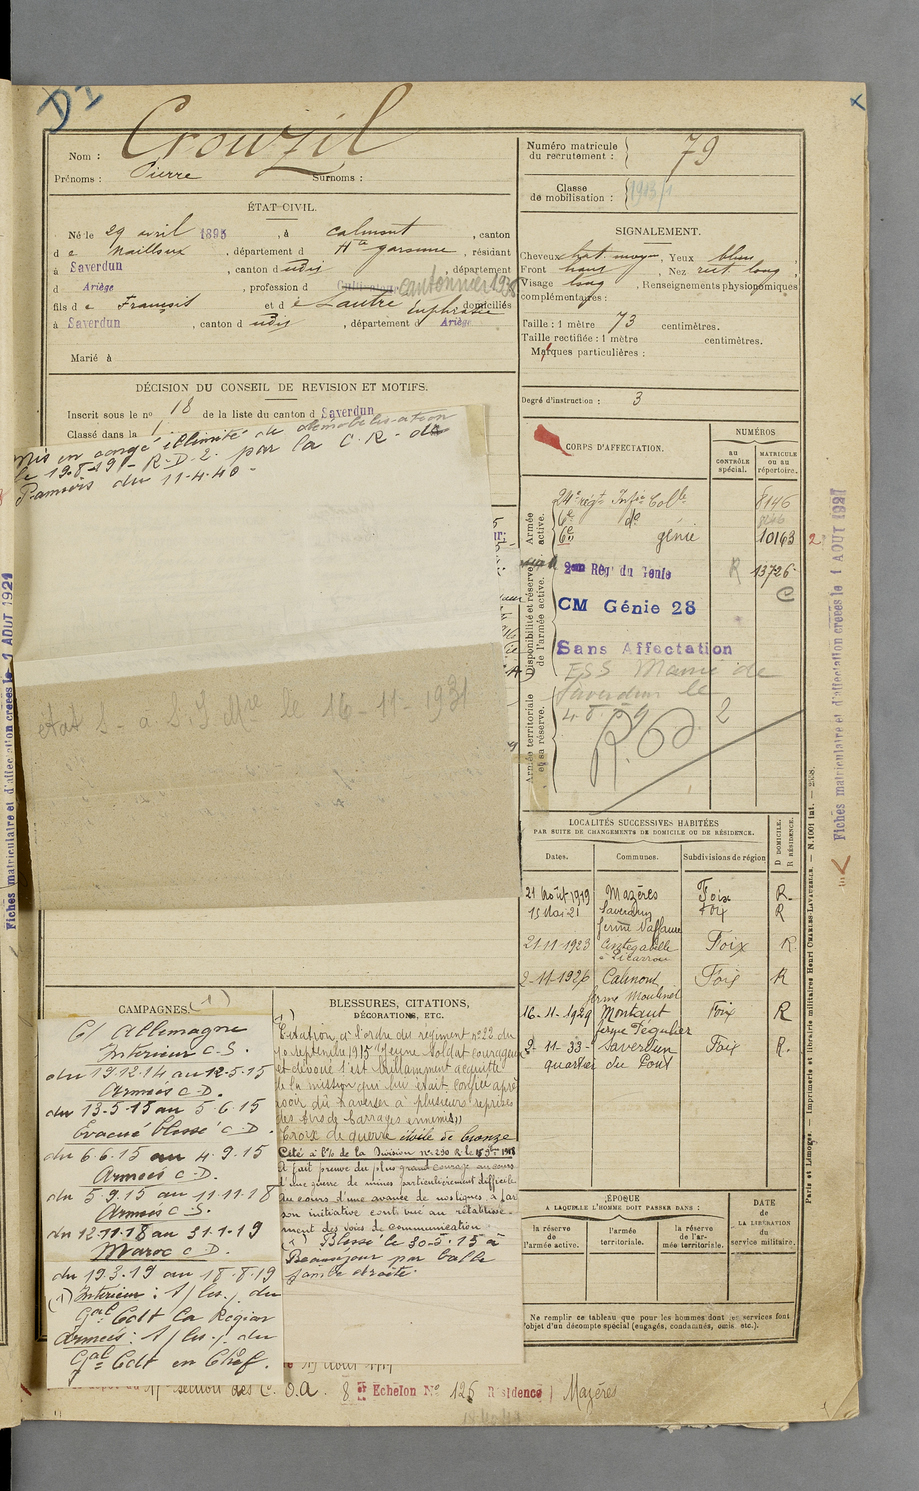 DI
Nom : Crouzil
Prénoms : Pierre Surnoms :
Numéro matricule du recrutement : 79
Classe de mobilisation : 1913/1
ÉTAT CIVIL.
Né le 29 avril 1895, à Calmont, canton
de Nailloux, département d Hte garonne, résidant
à Saverdun, canton d udis, département
d Ariège, profession d Cultivateur Cantonnier 1936
fils de François et de Lautré Euphrasie domiciliés
à Saverdun, canton d udis, département d Ariège
Marié à
SIGNALEMENT.
Cheveux chat. moyen, Yeux bleus
Front , Nez rect. long,
Visage long, Renseignements physionomiques
complémentaires :
Taille : 1 mètre 73 centimètres.
Taille rectifiée : 1 mètre centimètres.
Marques particulières :
Degré d'instruction : 3
DÉCISION DU CONSEIL DE REVISION ET MOTIFS.
Inscrit sous le no 18 de la liste du canton d Saverdun
Classé dans la 1
Mis en congé illimité de démobilisation
le 19-8-19 - R-D-2. par la C.R. de
Pamiers du 11-4-40 -
état S. a. S. J Mre le 16-11-1931
CORPS D'AFFECTATION.
NUMÉROS
au CONTRÔLE spécial.
MATRICULE ou au répertoire.
Armée active.
24e régt Infie Colle 8146
6e do 8146
6e génie 10163
Disponibilité et réserve de l'armée active.
2me Régt du Génie R 13726
C
CM Génie 28
Sans Affectation
ESS Mairie de
Saverdun le
Armée territoriale et sa réserve.
2
LOCALITÉS SUCCESSIVES HABITÉES
PAR SUITE DE CHANGEMENTS DE DOMICILE OU DE RÉSIDENCE.
Dates. Communes. Subdivisions de région D DOMICILE. R RÉSIDENCE.
21 Août 1919 Mazères Foix R.
15 Mai 21 Saverdun Foix R
ferme
21-11-1923 Cintegabelle Foix R
à Picarrou
2-11-1926 Calmont Foix R
ferme Moulinel
16-11-1929 Montaut Foix R
ferme Ségulier
2-11-33- Saverdun Foix R.
quartier du Pont
CAMPAGNES. (1)
C/ Allemagne
Intérieur C-S.
du 19.12.14 au 12-5-15
Armées C-D.
du 13-5-15 au 5-6-15
Évacué blessé C-D.
du 6.6.15 au 4.9.15
Armées C-D.
du 5.9.15 au 11.11.18
Armées C-S.
du 12.11.18 au 31-1-19
Maroc C-D.
du 19.3.19 au 18.8.19
(1) Intérieur : S/ les/ du
Gal Cdt la Région
Armées : S/ les/ du
Gal Cdt en Chef.
BLESSURES, CITATIONS,
DÉCORATIONS, ETC.
Citation à l'ordre du régiment no 22 du
10 septembre 1915 "Jeune Soldat courageux
et dévoué s'est brillamment acquitté
de la mission qui lui était confiée après
avoir dû traverser à plusieurs reprises
des tirs de barrages ennemis"
Croix de guerre étoile de bronze
Cité à l'O. de la Division no 290 R le 15 9bre 1918
a fait preuve du plus grand courage au cours
d'une guerre de mines particulièrement difficile
au cours d'une avance de nos lignes, a par
son initiative contribué au rétablisse-
ment des voies de communication.
(1) Blessé le 30-5-15 à
Beauséjour par balle
jambe droite.
ÉPOQUE
A LAQUELLE L'HOMME DOIT PASSER DANS :
la réserve de l'armée active.
l'armée territoriale.
la réserve de l'armée territoriale.
DATE de LA LIBÉRATION du service militaire.
Ne remplir ce tableau que pour les hommes dont les services font
l'objet d'un décompte spécial (engagés, condamnés, omis, etc.).
le 19 Août 1919
section des C. O.A. 8 er Echelon No 126 Résidence Mazères
Fiches matriculaire et d'affectation créées le 1 AOUT 1921
Fiches matriculaire et d'affectation créées le 1 AOUT 1921
Paris et Limoges. — Imprimerie et librairie militaires Henri CHARLES-LAVAUZELLE. — N. 1001 Int. — 2558.